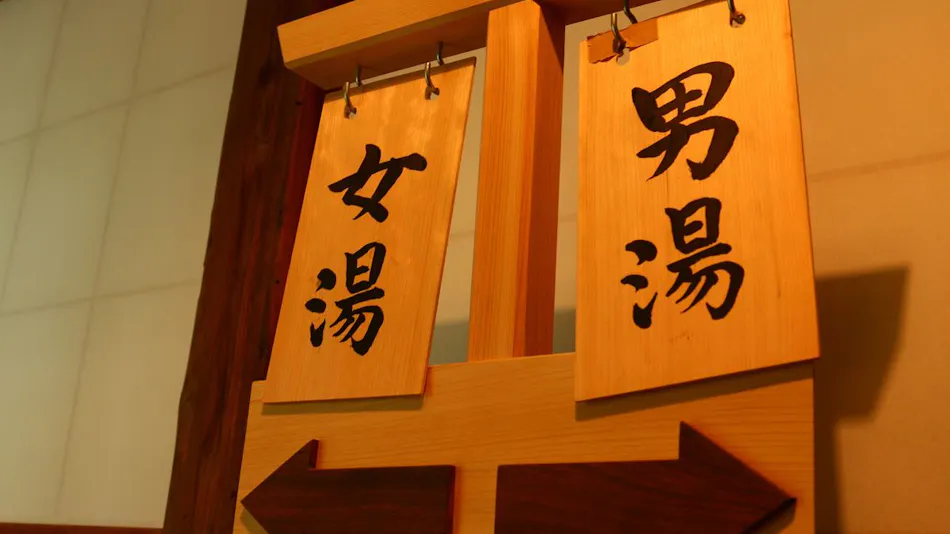 女湯
男湯